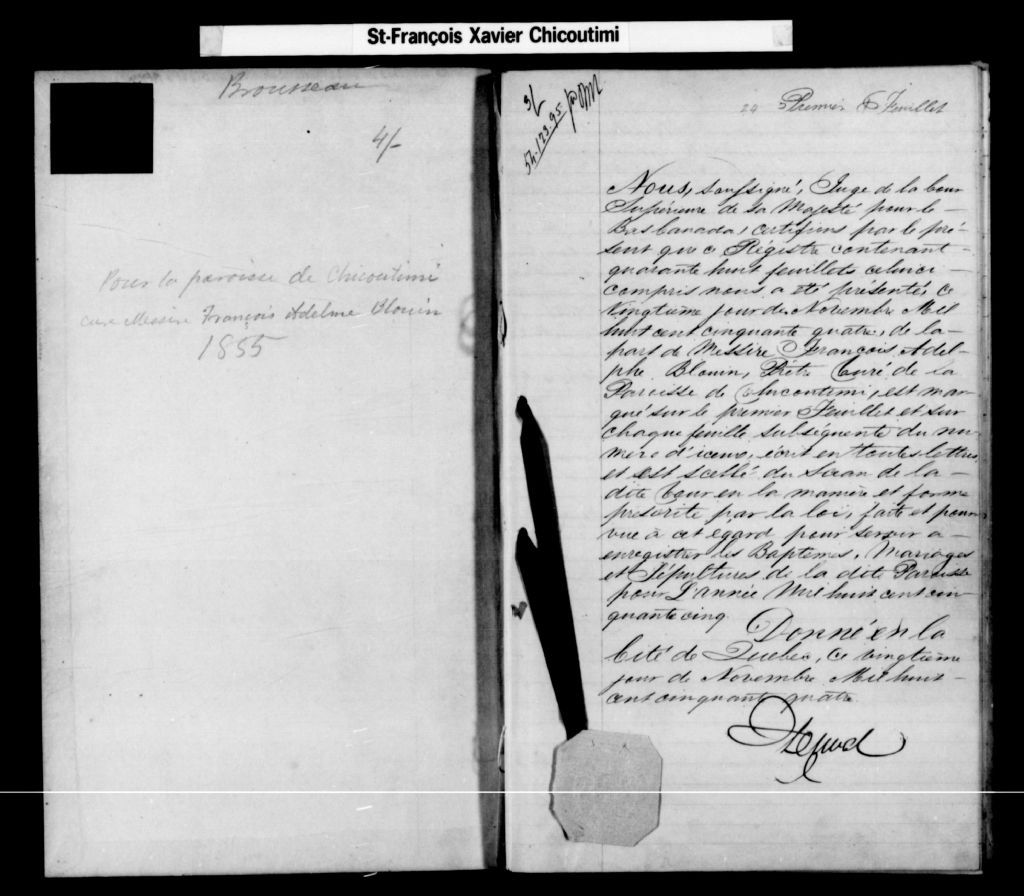 St-François Xavier Chicoutimi
Brousseau
4/-
Pour la paroisse de Chicoutimi
cure Messire François Adelme Blouin
1855
Premier Feuillet
Nous, soussigné, Juge de la Cour
Supérieure de Sa Majesté pour le
Bas Canada, certifions par le pré-
sent que ce Régistre contenant
quarante huit feuillets celui ci
compris nous a été présenté, ce
Vingtième jour de Novembre Mil
huit cent cinquante quatre, de la
part de Messire François Adel-
phe Blouin, Prêtre Curé de la
Paroisse de Chicoutimi, est mar-
qué sur le premier Feuillet et sur
chaque feuille subséquente du nu-
mero d'iceux, écrit en toutes lettres
et est scellé du Sceau de la
dite Cour en la manière et forme
prescrite par la loi, faite et pour-
vue à cet egard pour servir a
enregistrer les Baptemes, Mariages
et Sépultures de la dite Paroisse
pour L'année Mil huit cent cin
quante cinq
Donné en la
Cité de Quebec, Ce vingtième
jour de Novembre Mil huit
cent cinquante quatre